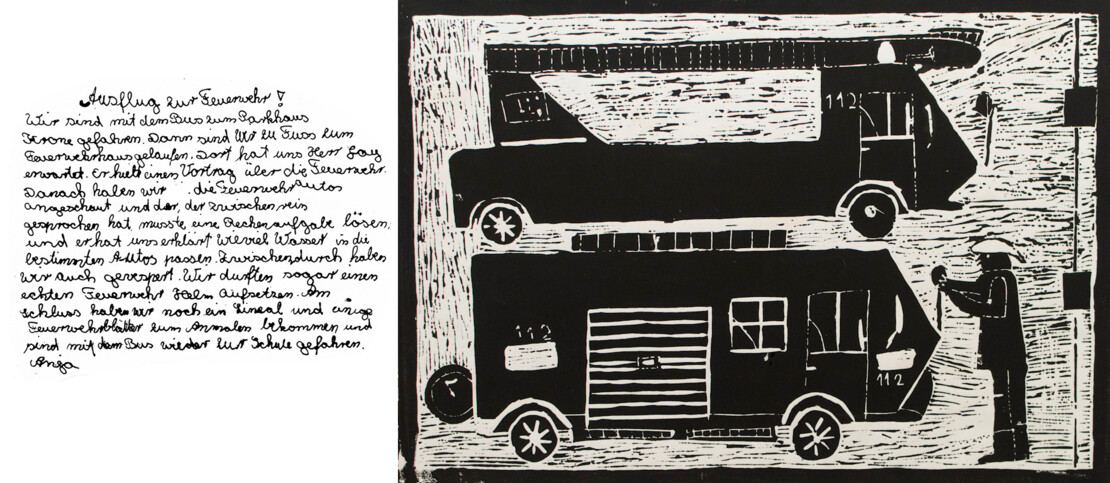 Ausflug zur Feuerwehr!
Wir sind mit dem Bus zum Parkhaus
Krone gefahren. Dann sind Wir zu Fuss zum
Feuerwehrhaus gelaufen. Dort hat uns Herr Gay
erwartet. Er hielt einen Vortrag über die Feuerwehr.
Danach haben wir die Feuerwehrautos
angeschaut und der, der zwischen rein
gesprochen hat, musste eine Rechenaufgabe lösen,
und er hat uns erklärt wieviel Wasser in die
bestimmten Autos passen. Zwischendurch haben
wir auch gevespert. Wir durften sogar einen
echten Feuerwehr Helm Aufsetzen. Am
schluss haben wir noch ein Lineal und einige
Feuerwehrblätter zum Anmalen bekommen und
sind mit dem Bus wieder zur Schule gefahren.
Anja
112
112
112